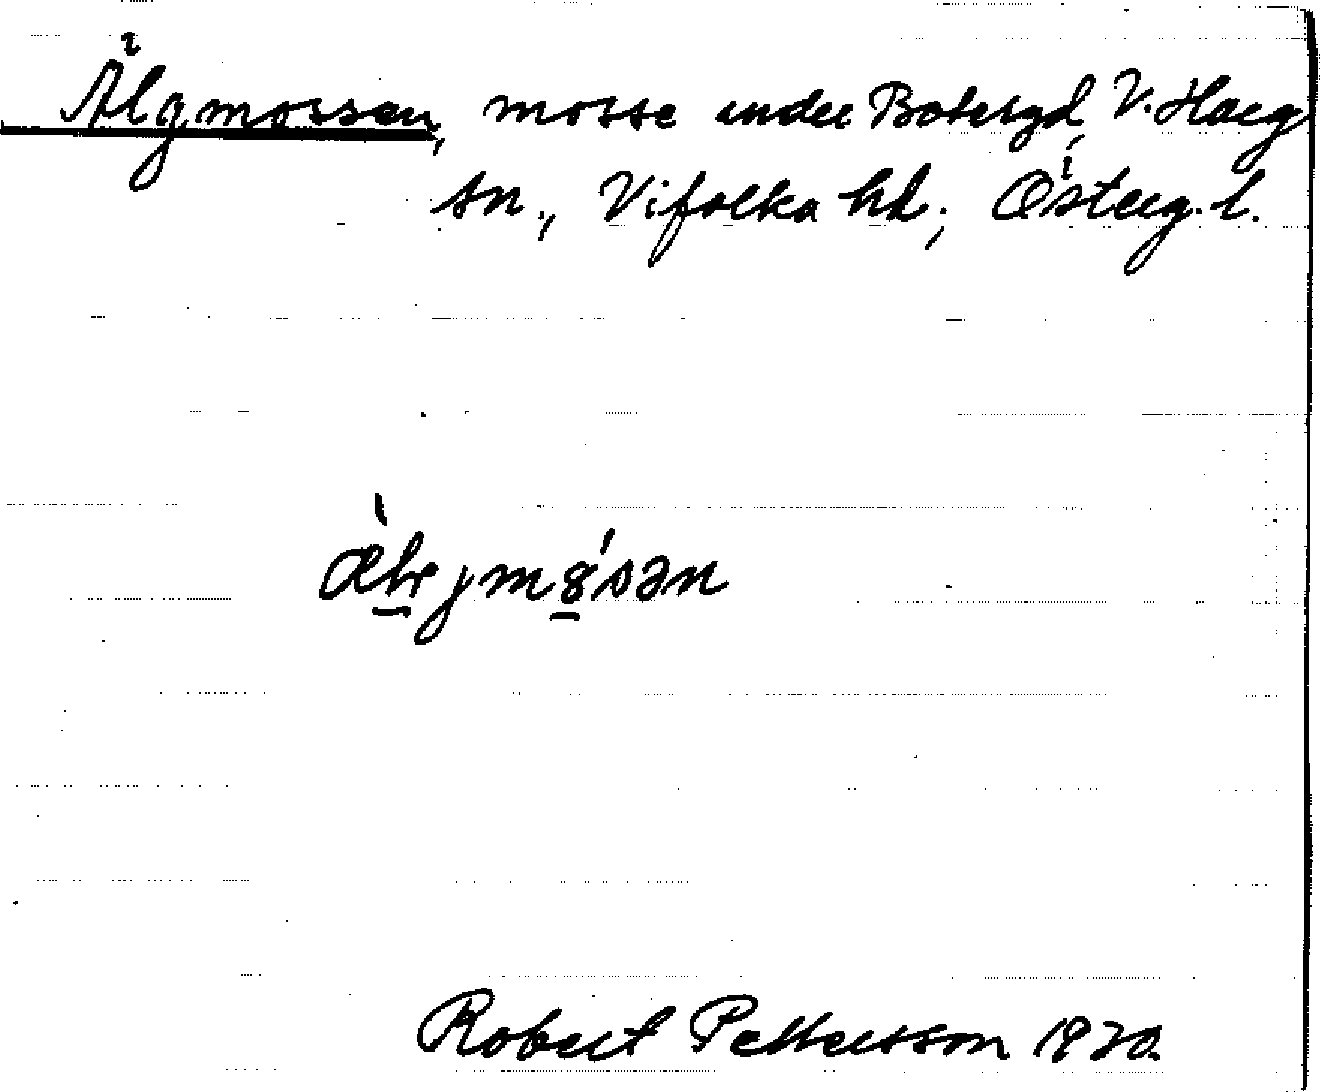 Älgmossen, mosse under Botersgd, V. Harg
sn., Vifolka hd., Österg. l.
Robert Pettersson 1920.